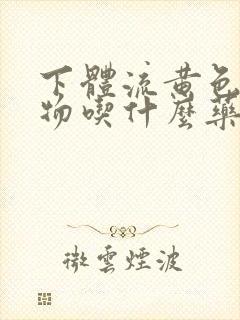 下體流黃色
物喫什麼藥
微雲煙波